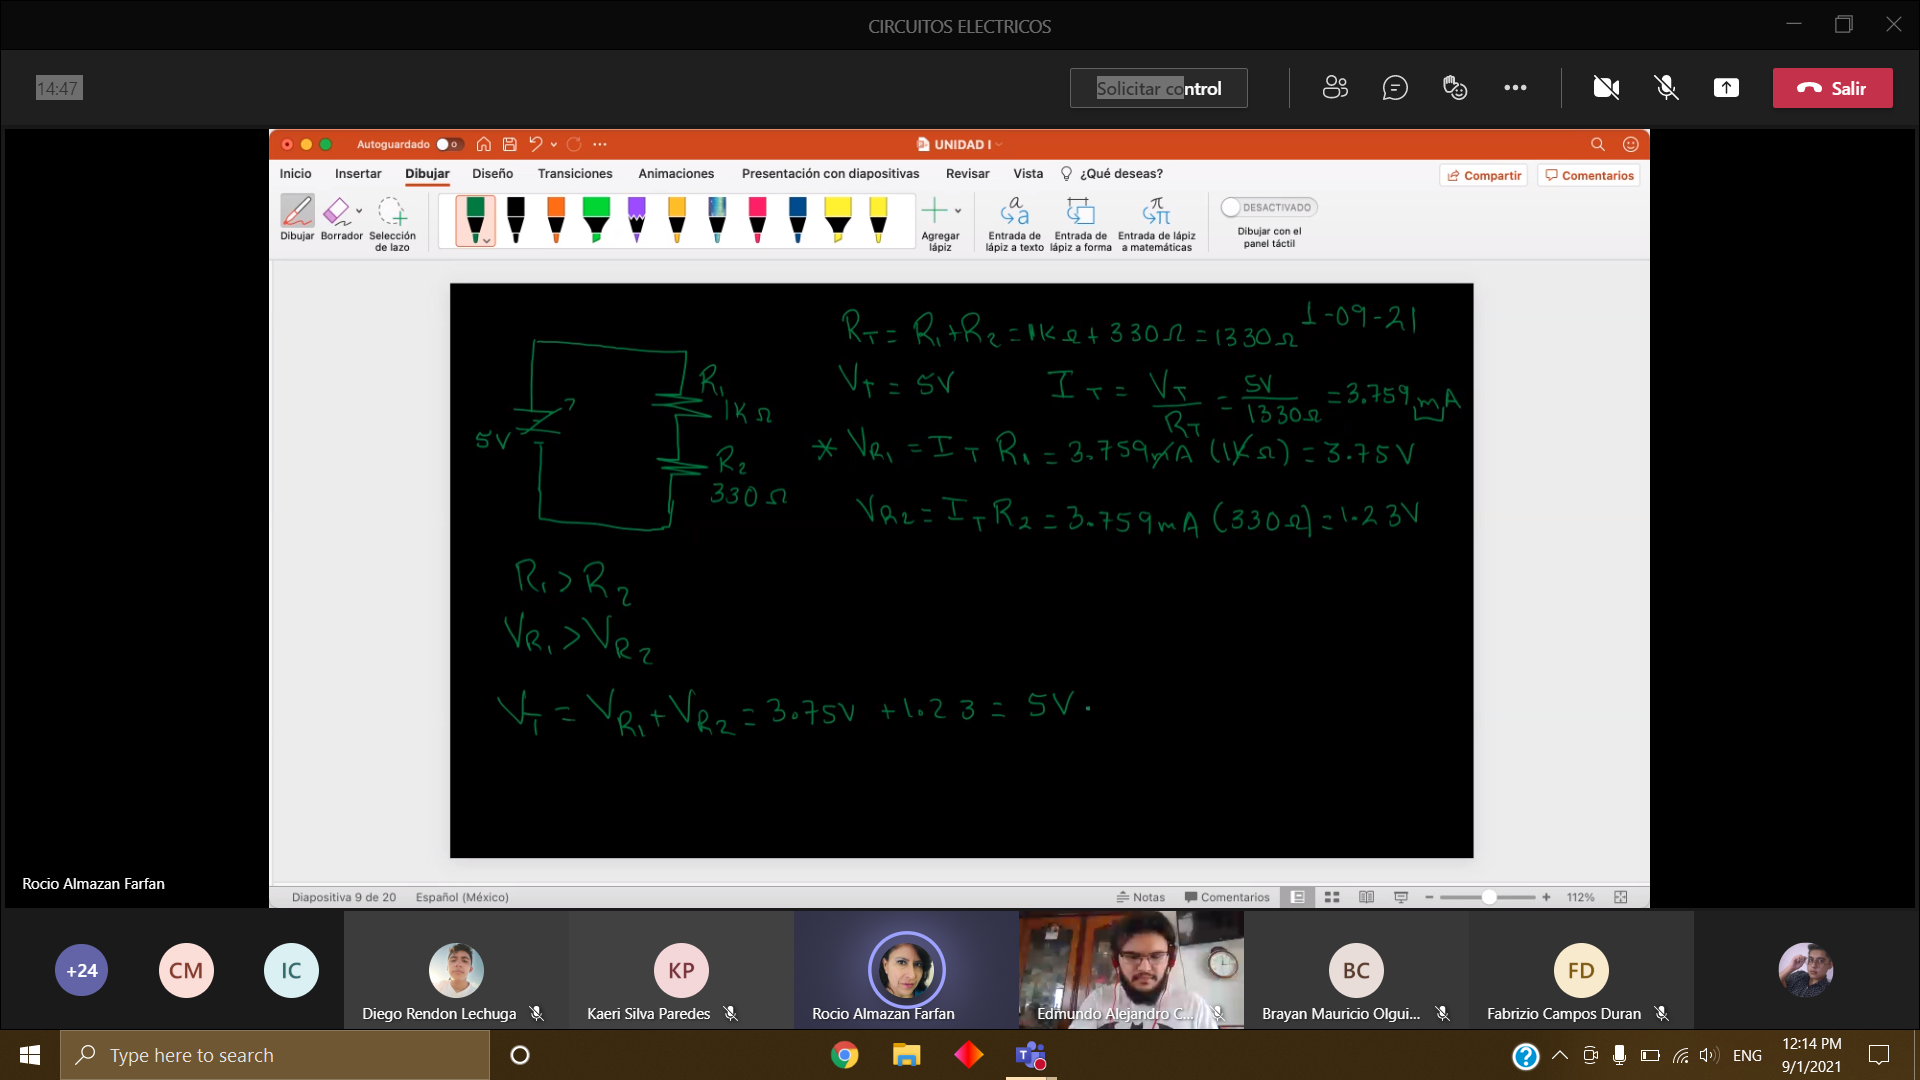 CIRCUITOS ELECTRICOS
14:47
Solicitar control
Salir
Autoguardado
UNIDAD I
Inicio Insertar Dibujar Diseño Transiciones Animaciones Presentación con diapositivas Revisar Vista ¿Qué deseas?
Compartir Comentarios
Dibujar Borrador Selección de lazo
Agregar lápiz
Entrada de lápiz a texto
Entrada de lápiz a forma
Entrada de lápiz a matemáticas
DESACTIVADO
Dibujar con el panel táctil
1-09-21
R_T = R_1 + R_2 = 1KΩ + 330Ω = 1330Ω
V_T = 5V I_T = V_T / R_T = 5V / 1330Ω = 3.759 mA
* V_R1 = I_T R_1 = 3.759mA (1KΩ) = 3.75V
V_R2 = I_T R_2 = 3.759mA (330Ω) = 1.23V
5V
R_1
1KΩ
R_2
330Ω
R_1 > R_2
V_R1 > V_R2
V_T = V_R1 + V_R2 = 3.75V + 1.23 = 5V.
Rocio Almazan Farfan
Diapositiva 9 de 20 Español (México)
Notas Comentarios 112%
+24 CM IC KP BC FD
Diego Rendon Lechuga
Kaeri Silva Paredes
Rocio Almazan Farfan
Edmundo Alejandro C...
Brayan Mauricio Olgui...
Fabrizio Campos Duran
Type here to search
ENG
12:14 PM
9/1/2021